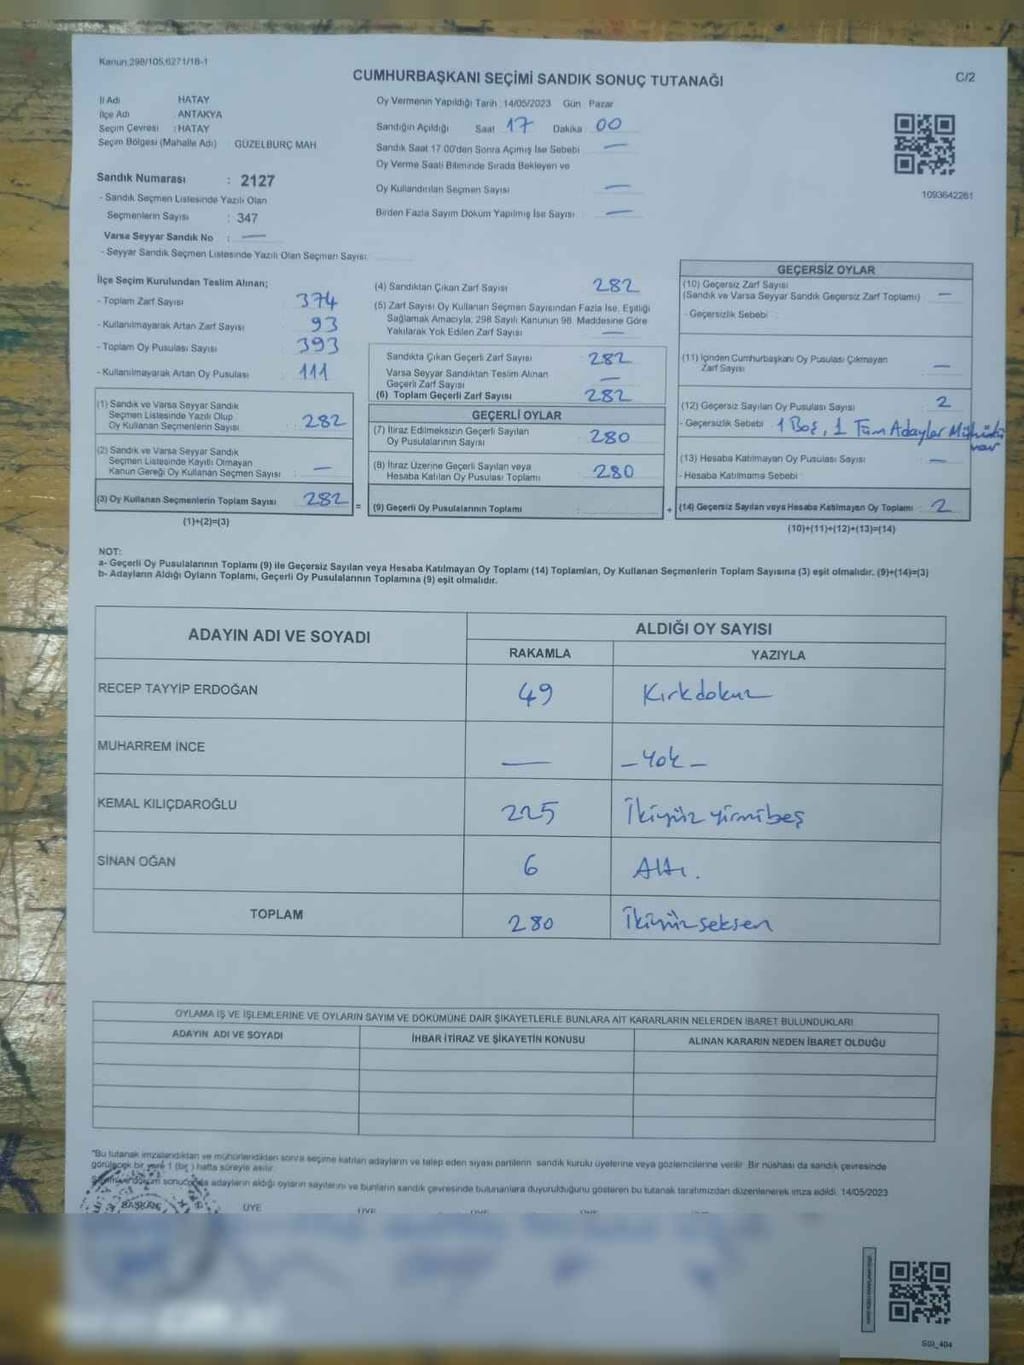 Kanun:298/105,6271/18-1
CUMHURBAŞKANI SEÇİMİ SANDIK SONUÇ TUTANAĞI
C/2
İl Adı HATAY
İlçe Adı ANTAKYA
Seçim Çevresi : HATAY
Seçim Bölgesi (Mahalle Adı) GÜZELBURÇ MAH
Sandık Numarası : 2127
- Sandık Seçmen Listesinde Yazılı Olan
Seçmenlerin Sayısı : 347
Varsa Seyyar Sandık No : —
- Seyyar Sandık Seçmen Listesinde Yazılı Olan Seçmen Sayısı:
Oy Vermenin Yapıldığı Tarih : 14/05/2023 Gün Pazar
Sandığın Açıldığı Saat 17 Dakika 00
Sandık Saat 17.00'den Sonra Açımış İse Sebebi —
Oy Verme Saati Bitiminde Sırada Bekleyen ve
Oy Kullandırılan Seçmen Sayısı —
Birden Fazla Sayım Döküm Yapılmış İse Sayısı —
1093642261
İlçe Seçim Kurulundan Teslim Alınan;
- Toplam Zarf Sayısı 374
- Kullanılmayarak Artan Zarf Sayısı 93
- Toplam Oy Pusulası Sayısı 393
- Kullanılmayarak Artan Oy Pusulası 111
(1) Sandık ve Varsa Seyyar Sandık
Seçmen Listesinde Yazılı Olup
Oy Kullanan Seçmenlerin Sayısı 282
(2) Sandık ve Varsa Seyyar Sandık
Seçmen Listesinde Kayıtlı Olmayan
Kanun Gereği Oy Kullanan Seçmen Sayısı —
(3) Oy Kullanan Seçmenlerin Toplam Sayısı 282 =
(1)+(2)=(3)
(4) Sandıktan Çıkan Zarf Sayısı 282
(5) Zarf Sayısı Oy Kullanan Seçmen Sayısından Fazla İse, Eşitliği
Sağlamak Amacıyla, 298 Sayılı Kanunun 98. Maddesine Göre
Yakılarak Yok Edilen Zarf Sayısı —
Sandıkta Çıkan Geçerli Zarf Sayısı 282
Varsa Seyyar Sandıktan Teslim Alınan
Geçerli Zarf Sayısı —
(6) Toplam Geçerli Zarf Sayısı 282
GEÇERLİ OYLAR
(7) İtiraz Edilmeksizin Geçerli Sayılan
Oy Pusulalarının Sayısı 280
(8) İtiraz Üzerine Geçerli Sayılan veya
Hesaba Katılan Oy Pusulası Toplamı 280
(9) Geçerli Oy Pusulalarının Toplamı : +
GEÇERSİZ OYLAR
(10) Geçersiz Zarf Sayısı
(Sandık ve Varsa Seyyar Sandık Geçersiz Zarf Toplamı) —
- Geçersizlik Sebebi :
(11) İçinden Cumhurbaşkanı Oy Pusulası Çıkmayan
Zarf Sayısı —
(12) Geçersiz Sayılan Oy Pusulası Sayısı 2
- Geçersizlik Sebebi : 1 Boş, 1 Tüm Adaylar Mühürlü
var
(13) Hesaba Katılmayan Oy Pusulası Sayısı —
- Hesaba Katılmama Sebebi :
(14) Geçersiz Sayılan veya Hesaba Katılmayan Oy Toplamı 2
(10)+(11)+(12)+(13)=(14)
NOT:
a- Geçerli Oy Pusulalarının Toplamı (9) ile Geçersiz Sayılan veya Hesaba Katılmayan Oy Toplamı (14) Toplamları, Oy Kullanan Seçmenlerin Toplam Sayısına (3) eşit olmalıdır. (9)+(14)=(3)
b- Adayların Aldığı Oyların Toplamı, Geçerli Oy Pusulalarının Toplamına (9) eşit olmalıdır.
ADAYIN ADI VE SOYADI ALDIĞI OY SAYISI
RAKAMLA YAZIYLA
RECEP TAYYİP ERDOĞAN 49 Kırkdokuz
MUHARREM İNCE — -Yok-
KEMAL KILIÇDAROĞLU 225 İkiyüz yirmibeş
SİNAN OĞAN 6 Altı.
TOPLAM 280 İkiyüz seksen
OYLAMA İŞ VE İŞLEMLERİNE VE OYLARIN SAYIM VE DÖKÜMÜNE DAİR ŞİKAYETLERLE BUNLARA AİT KARARLARIN NELERDEN İBARET BULUNDUKLARI
ADAYIN ADI VE SOYADI İHBAR İTİRAZ VE ŞİKAYETİN KONUSU ALINAN KARARIN NEDEN İBARET OLDUĞU
"Bu tutanak imzalandıktan ve mühürlendikten sonra seçime katılan adayların ve talep eden siyasi partilerin sandık kurulu üyelerine veya gözlemcilerine verilir. Bir nüshası da sandık çevresinde
görülecek bir yere 1 (bir ) hafta süreyle asılır.
sonucunda adayların aldığı oyların sayılarını ve bunların sandık çevresinde bulunanlara duyurulduğunu gösteren bu tutanak tarafımızdan düzenlenerek imza edildi. 14/05/2023
BAŞKAN ÜYE ÜYE ÜYE ÜYE ÜYE
S03_404